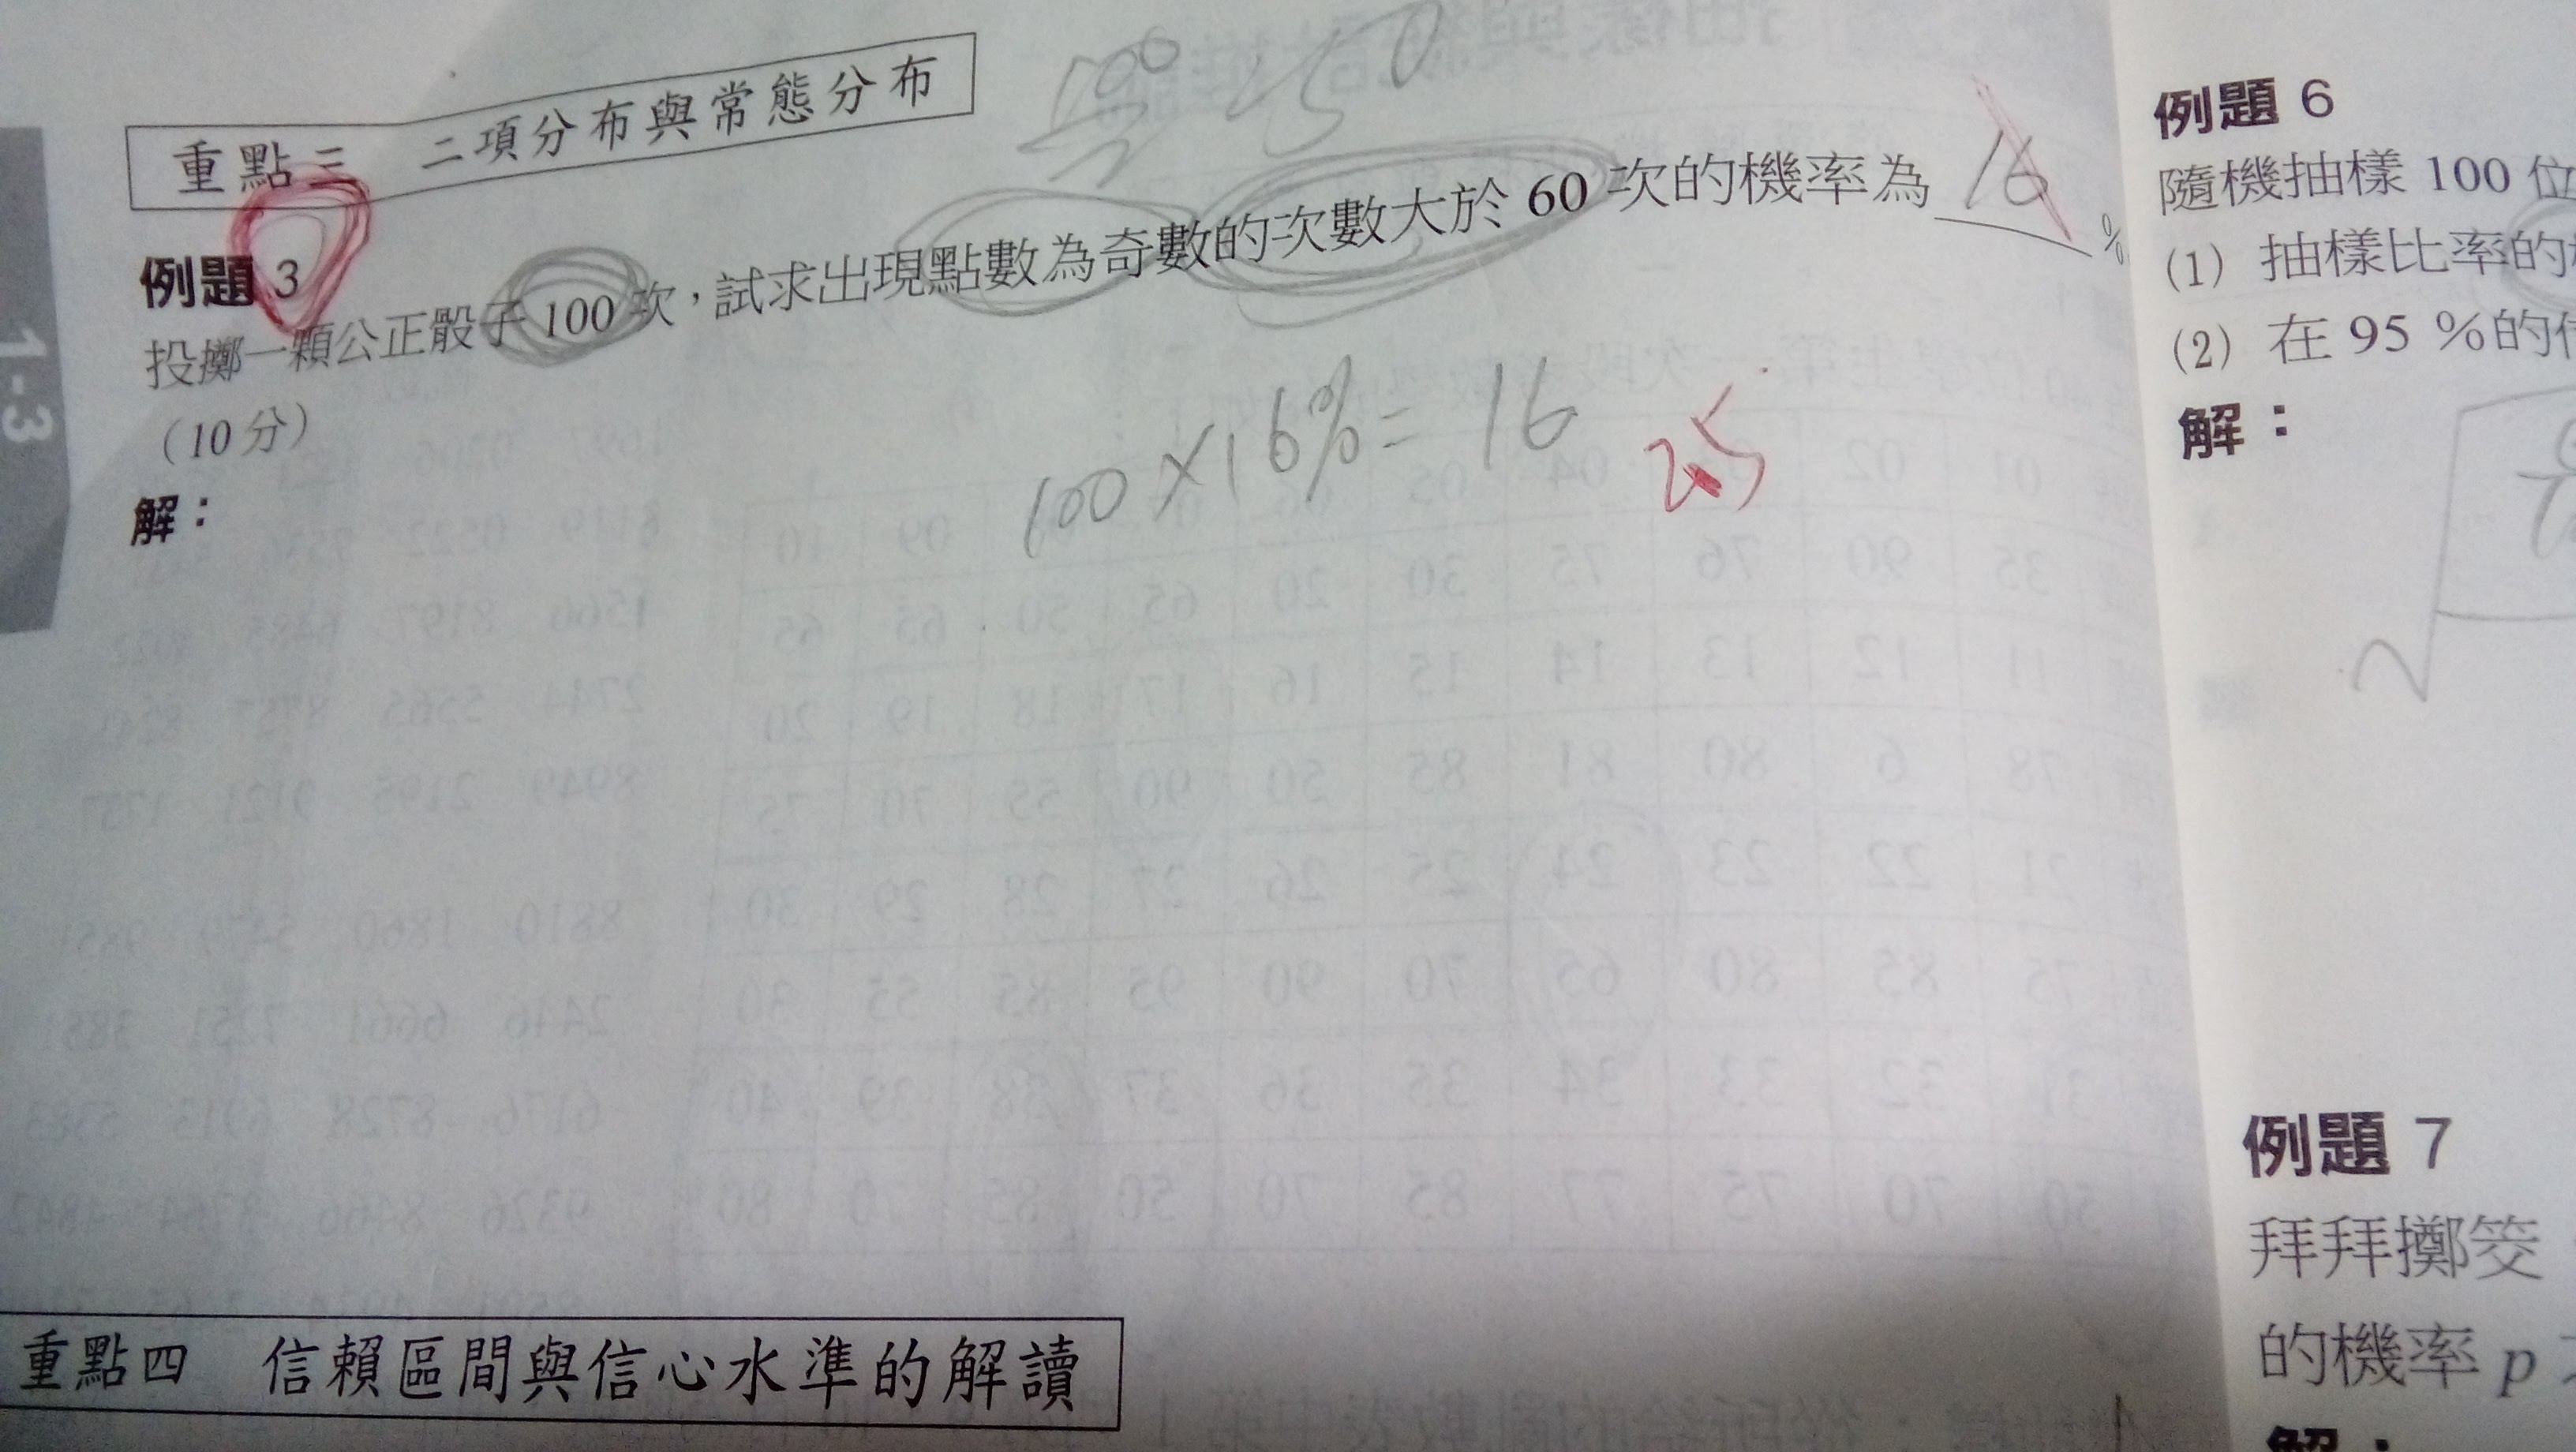 重點三 二項分布與常態分布
例題 3
投擲一顆公正骰子 100 次，試求出現點數為奇數的次數大於 60 次的機率為 16 %
（10 分）
解：
100 × 16% = 16
2.5
重點四 信賴區間與信心水準的解讀
1-3
例題 6
隨機抽樣 100 位
(1) 抽樣比率的
(2) 在 95 %的
解：
例題 7
拜拜擲筊
的機率 p
解：